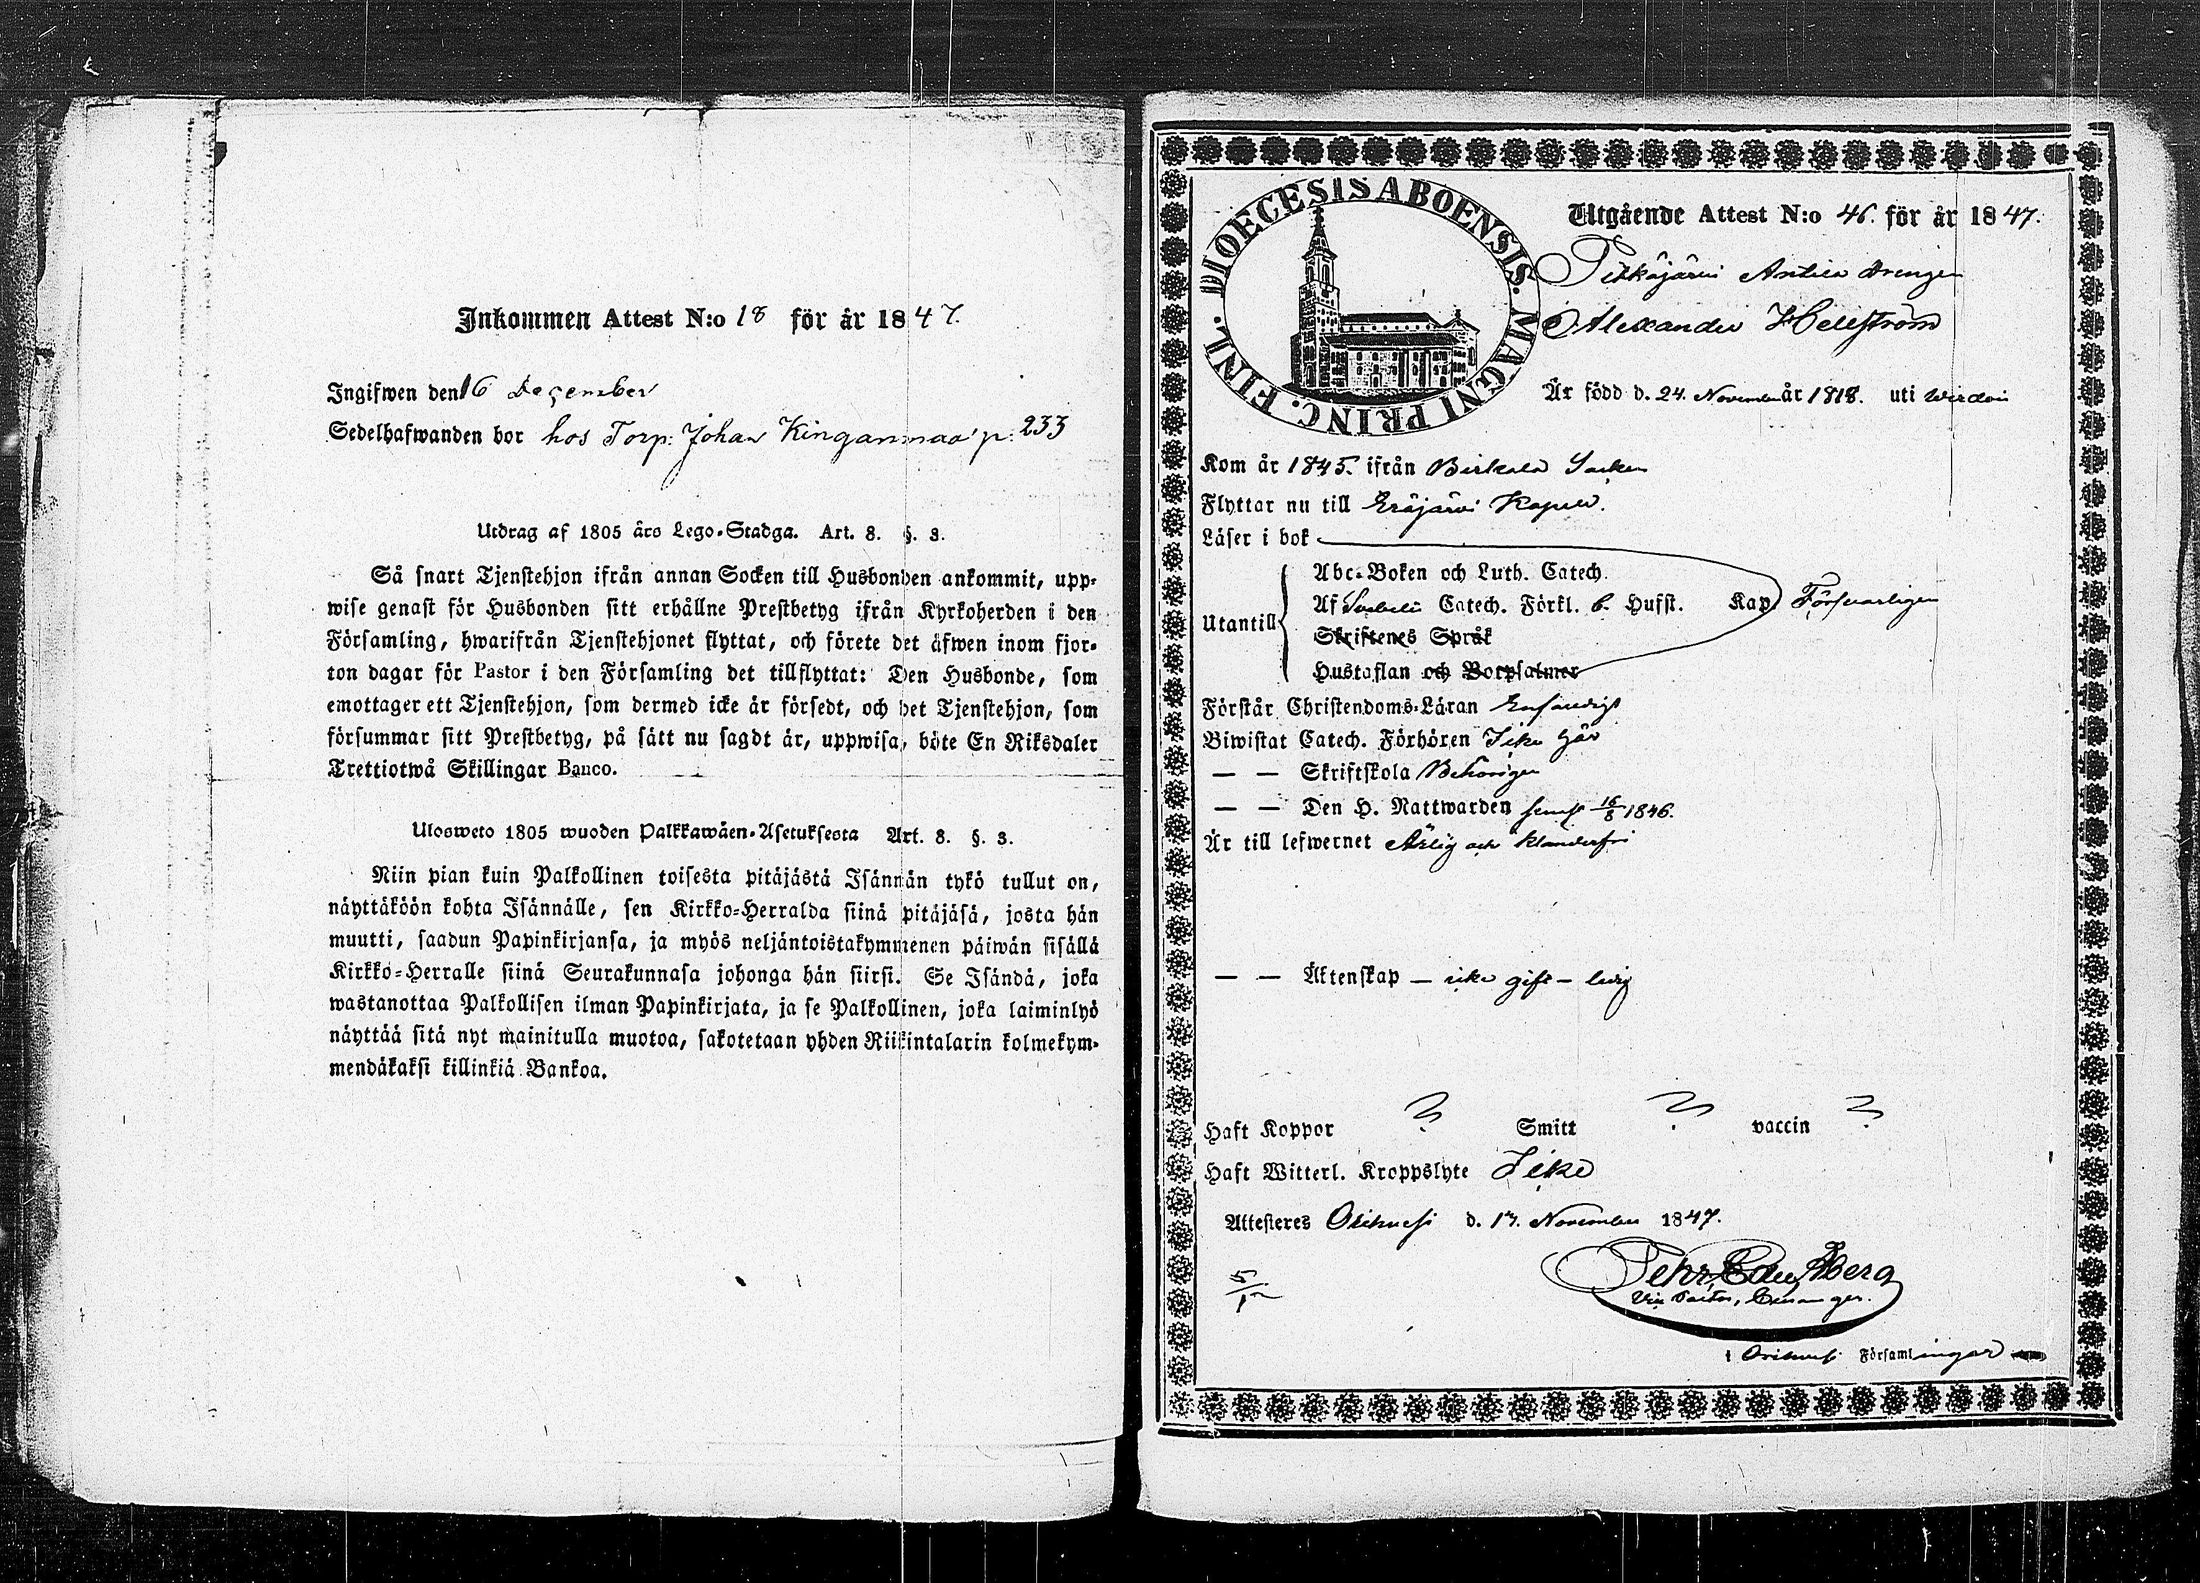 Inkommen Attest N:o 18 för år 1847.
Ingifwen den 16 December
Sedelhafwanden bor hos Torp: Johan Kinganmaa p: 233
Utdrag af 1805 års Lego-Stadga. Art. 8. §. 3.
Så snart Tjenstehjon ifrån annan Socken till Husbonden ankommit, upp-
wise genast för Husbonden sitt erhållne Prestbetyg ifrån Kyrkoherden i den
Församling, hwarifrån Tjenstehjonet flyttat, och förete det äfwen inom fjor-
ton dagar för Pastor i den Församling det tillflyttat: Den Husbonde, som
emottager ett Tjenstehjon, som dermed icke är försedt, och det Tjenstehjon, som
försummar sitt Prestbetyg, på sätt nu sagdt är, uppwisa, böte En Riksdaler
Trettiotwå Skillingar Banco.
Ulosweto 1805 wuoden Palkkawäen-Asetuksesta Art. 8. §. 3.
Niin pian kuin Palkollinen toisesta pitäjästä Isännän tykö tullut on,
näyttäköön kohta Isännälle, sen Kirkko-Herralda siinä pitäjäsä, josta hän
muutti, saadun Papinkirjansa, ja myös neljäntoistakymmenen päiwän sisällä
Kirkko-Herralle siinä Seurakunnasa johonga hän siirsi. Se Isändä, joka
wastanottaa Palkollisen ilman Papinkirjata, ja se Palkollinen, joka laiminlyö
näyttää sitä nyt mainitulla muotoa, sakotetaan yhden Riikintalarin kolmekym-
mendäkaksi killinkiä Bankoa.
DIOECESIS ABOENSIS. MAGNI PRINC. FINL.
Utgående Attest N:o 46. för år 1847.
Pitkäjärvi Anttila Drengen
Alexander Hellström
Är född d. 24. November år 1818. uti Wirdois
Kom år 1845. ifrån Birkala Socken
Flyttar nu till Eräjärvi Kapell.
Läser i bok
Utantill
Abc-Boken och Luth. Catech.
Af Svebelii Catech. Förkl. 6. Hufst. Kap Försvarligen
Skriftenes Språk
Hustaflan och Botpsalmer
Förstår Christendoms-Läran Enfaldigt
Biwistat Catech. Förhören Icke här
— — Skriftskola Behörigen
— — Den H. Nattwarden senast 16/8 1846.
Är till lefwernet Ärlig och klanderfri
— — Äktenskap — icke gift — ledig
Haft Koppor ? Smitt ? vaccin ?
Haft Witterl. Kroppslyte Icke
Attesteres Orihvesi d. 17. November 1847.
5/12
Vice Pastor,
i Orihvesi Församlingar